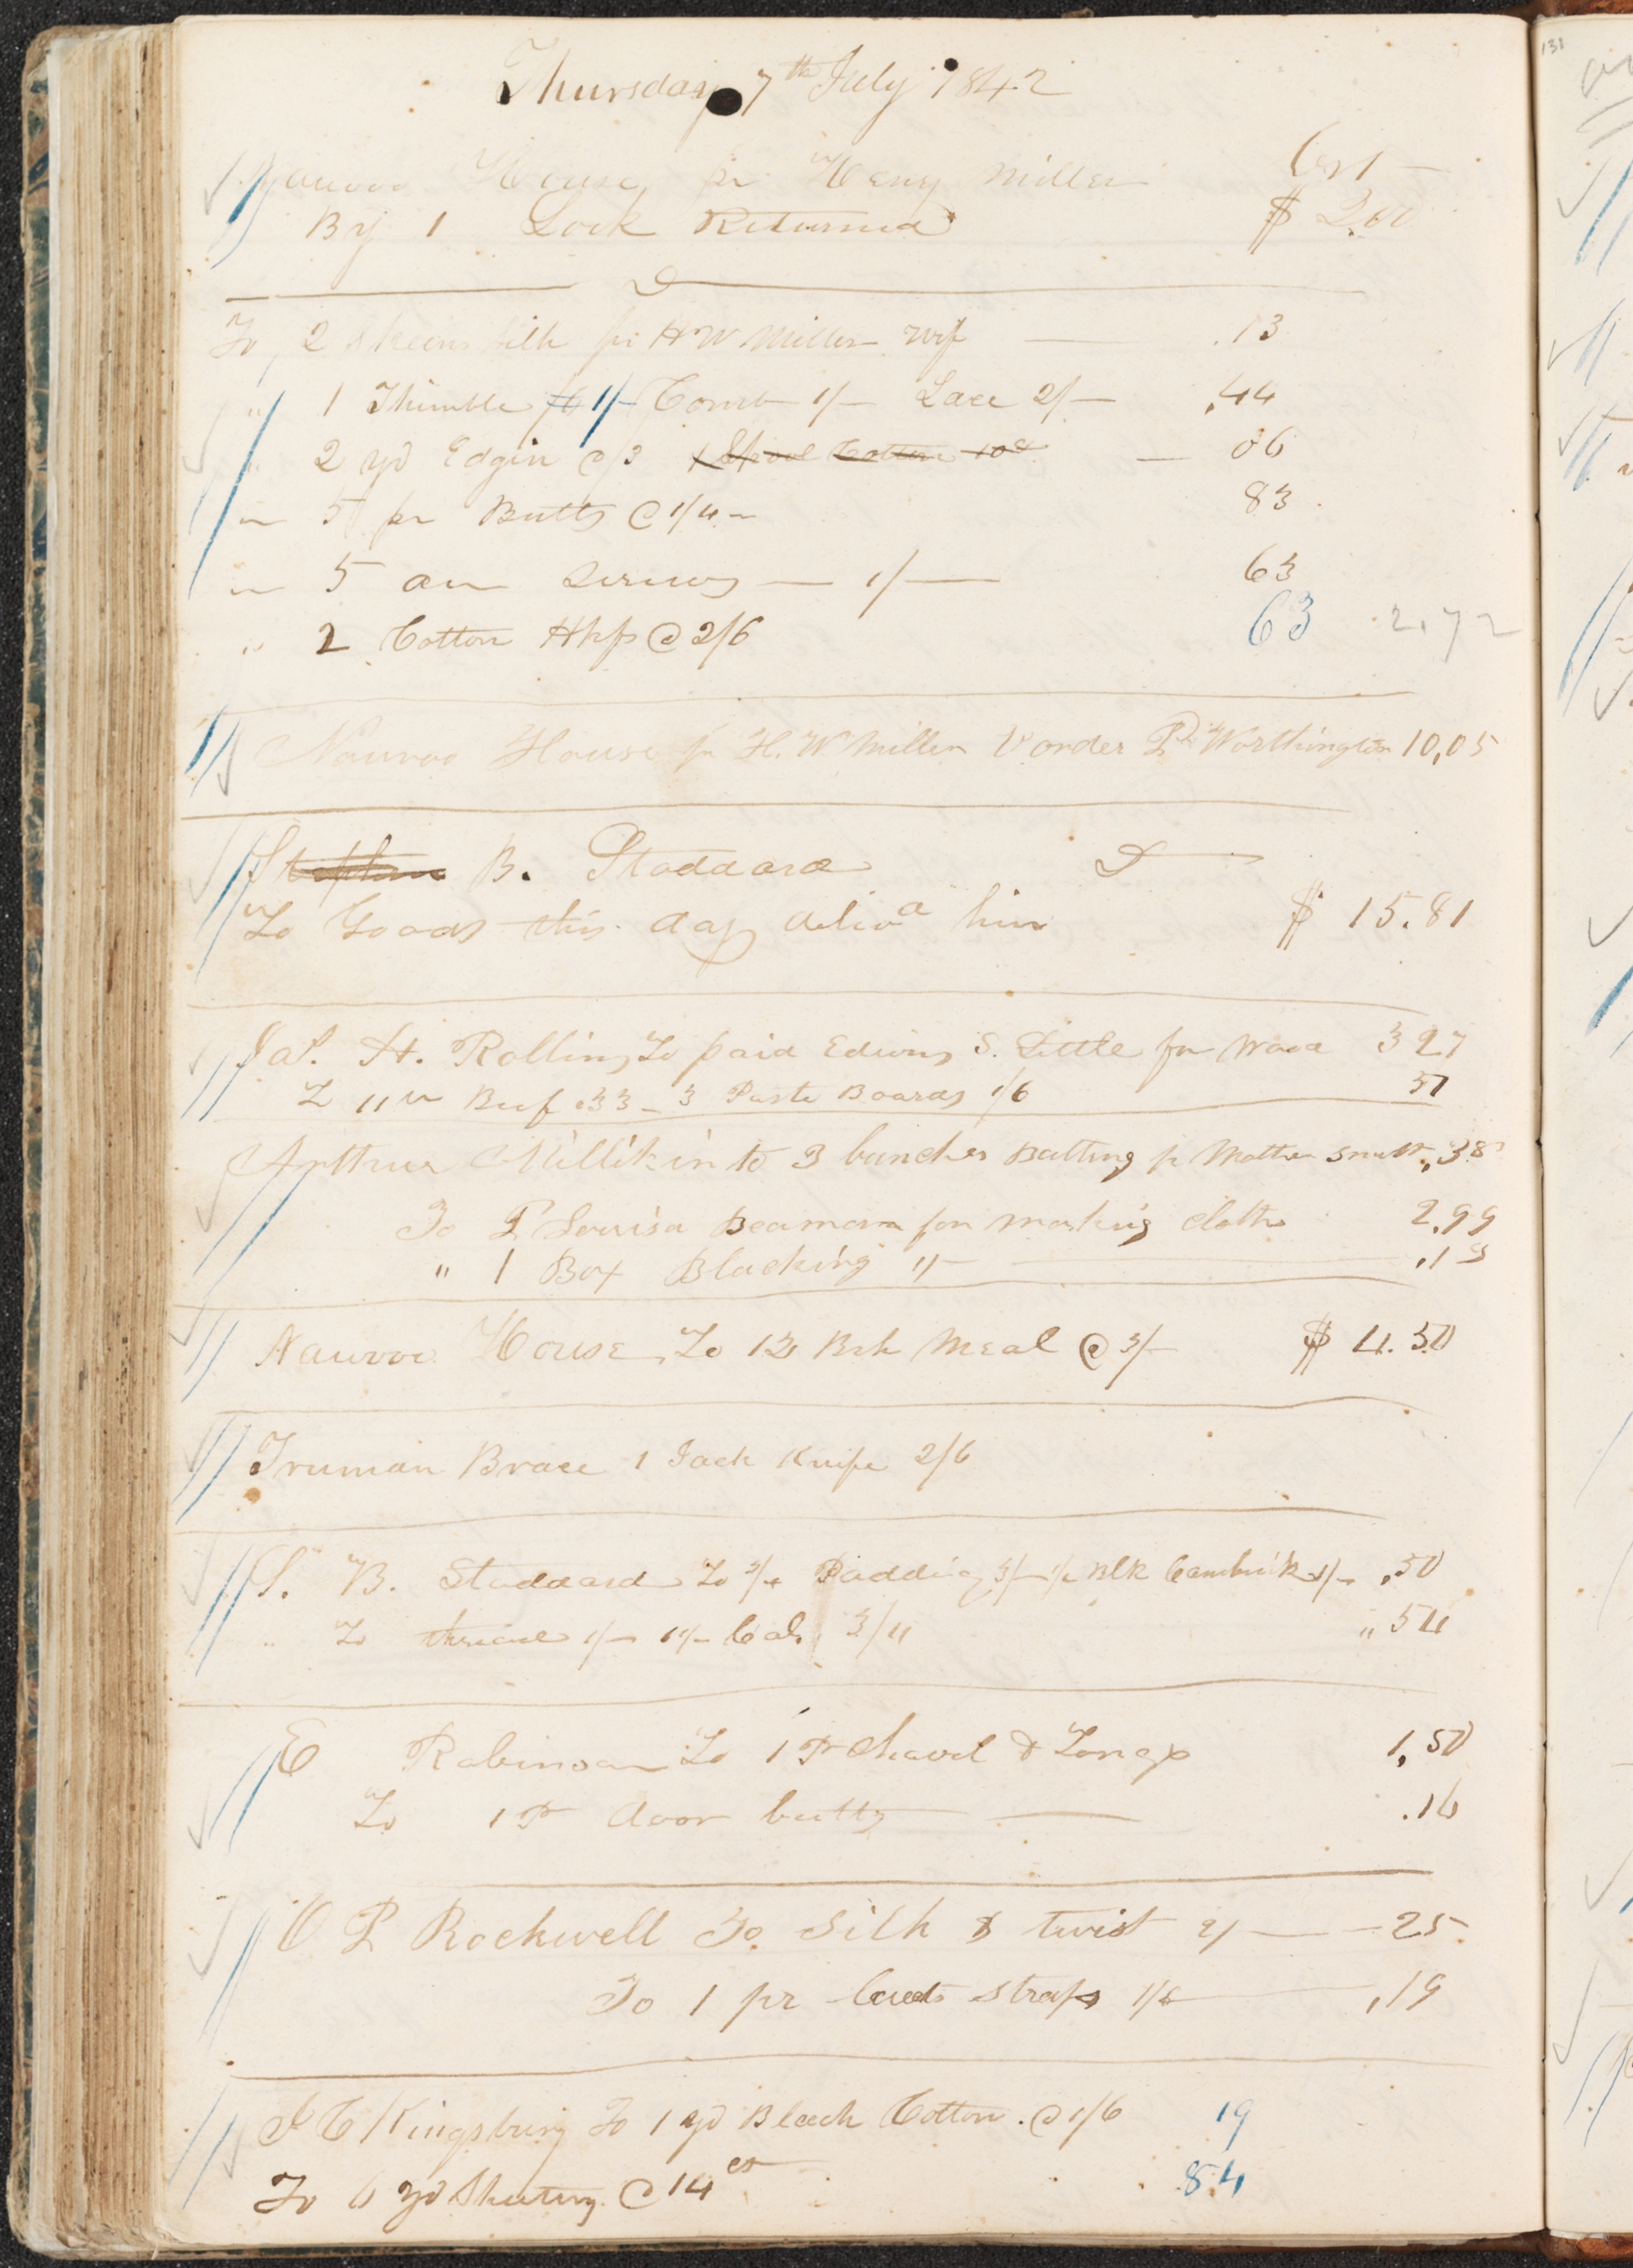 Thursday 7th July 1842
Nauvoo House, pr Henry Miller Cr
By 1 Lock Returned $ 2.00
D
To 2 skeins silk pr H W Miller wif .13
" 1 Thimble 1/- Comb 1/- Lace 2/- .44
" 2 yd Edgin @ /3 1 Spool Cotton 10c 06
" 5 pr Butts @ 1/4 83
" 5 Screws 1/ 63
" 2 Cotton Hkfs @ 2/6 63 2,72
Nauvoo House pr H. W Miller order Worthington 10,05
Stephen B. Stoddard D
To Goods this day delivd him $ 15.81
Jas. H. Rollins To paid Edwin S. Little for Wood 3 27
To 11 lb Beef .33 3 Paste Boards 1/6 51
Arthur Millikin to 3 bunches Batting pr Mother Smith ,38
To Louisa Beaman for making cloths 2,99
" 1 Box Blacking 1/- ,13
Nauvoo House, To 12 Bsh Meal @ 3/- $ 4.50
Truman Brace 1 Jack Knife 2/6
S. B. Stoddard To 3/4 Padding 3/- 1/2 Blk Cambrick 1/- ,50
" To thread 1/- Cal. 3/4 " 54
E Robinson To 1 Pr Shovel & Tongs 1,50
To 1 Pr door butts .16
O P Rockwell To Silk & twist 2/ 25
To 1 pr straps 1/6 ,19
J C Kingsbury To 1 yd Bleach Cotton. @ 1/6 19
To 6 yd Sheeting @ 14 cts 84
131